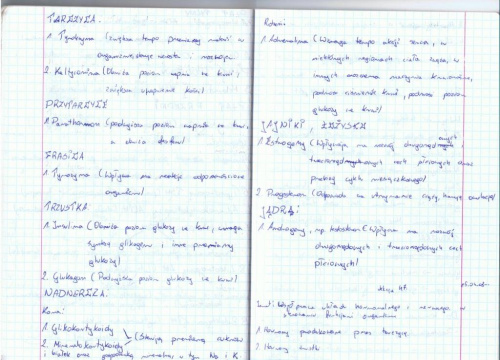 TARCZYCA.
1. Tyroksyna (zwiększa tempo przemiany materii w
organizmie, steruje wzrostem i rozwojem
2. Kalcytonina (Obniża poziom wapnia we krwi i
zwiększa wapnienie kości)
PRZYTARCZYCE
1. Parathormon (podwyższa poziom wapnia we krwi,
a obniża
GRASICA
1. Tymozyna (Wpływa na reakcje odpornościowe
organizmu)
TRZUSTKA
1. Insulina (Obniża poziom glukozy we krwi, wzmaga
syntezę glikogenu i inne przemiany
glukozy)
2. Glukagon (Podwyższa poziom glukozy we krwi)
NADNERCZA.
Kora:
1. Glikokortykoidy (Sterują przemianą cukrów
2. Mineralokortykoidy
i białek oraz gospodarką mineralną w tym Na i K
Rdzeń:
1. Adrenalina (Wzmaga tempo akcji serca, w
niektórych regionach ciała zwęża, w
innych rozszerza naczynia krwionośne,
podnosi ciśnienie krwi, podnosi poziom
glukozy we krwi)
JAJNIKI, ŁOŻYSKO
1. Estrogeny (Wpływają na rozwój drugorzędowych
i trzeciorzędowych cech płciowych oraz
przebieg cyklu miesiączkowego)
2. Progesteron (Odpowiada za utrzymanie ciąży, hamuje owulację)
JĄDRA:
1. Androgeny, np. testosteron (Wpływa na rozwój
drugorzędowych i trzeciorzędowych cech
płciowych)
Lekcja 41.
Temat: Współpraca układu hormonalnego i nerwowego w
1. Hormony produkowane przez tarczycę.
2. Hormony